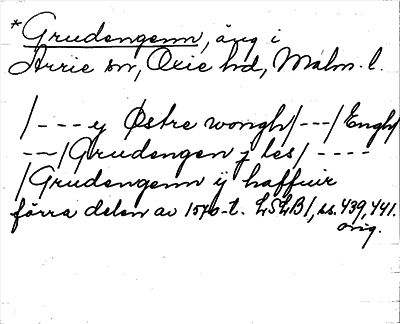 *Grudengenn, äng i
Arrie sn, Oxie hd, Malm. l.
/--- y Østre wongh/---/Engh/
--/Grudengen j les/ ----
/Grudengenn ij haffuir
förra delen av 1570-t. LSLB1, ss. 439, 441.
orig.